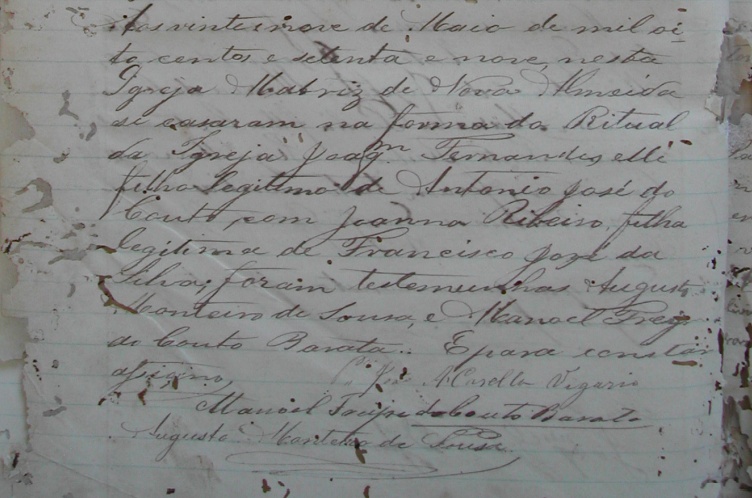 Aos vinte nove de Maio de mil oi-
to centos e setenta e nove, nesta
Igreja Matriz de Nova Almeida
se casaram na forma do Ritual
da Igreja Joaqm Fernandes elle
filho legitimo de Antonio José do
Couto, com Joanna Ribeiro, filha
legitima de Francisco José da
Silva; foram testemunhas Augusto
Monteiro de Sousa, e Manoel
do Couto Barata. E para constar
assigno,
Vigario
Manoel do Couto Barata
Augusto Monteiro de Sousa